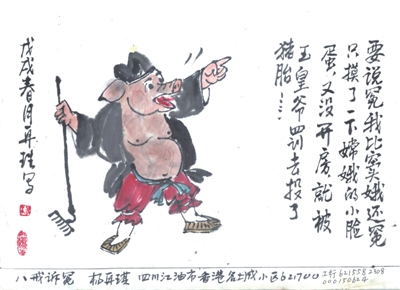 要说冤我比窦娥还冤
只摸了一下嫦娥的小脸
蛋,又没开房就被
玉皇爷罚去投了
猪胎……
戊戌春月再 写
八戒诉冤 杨再 四川江油市香港名城小区621700 工行6215582308
000150624